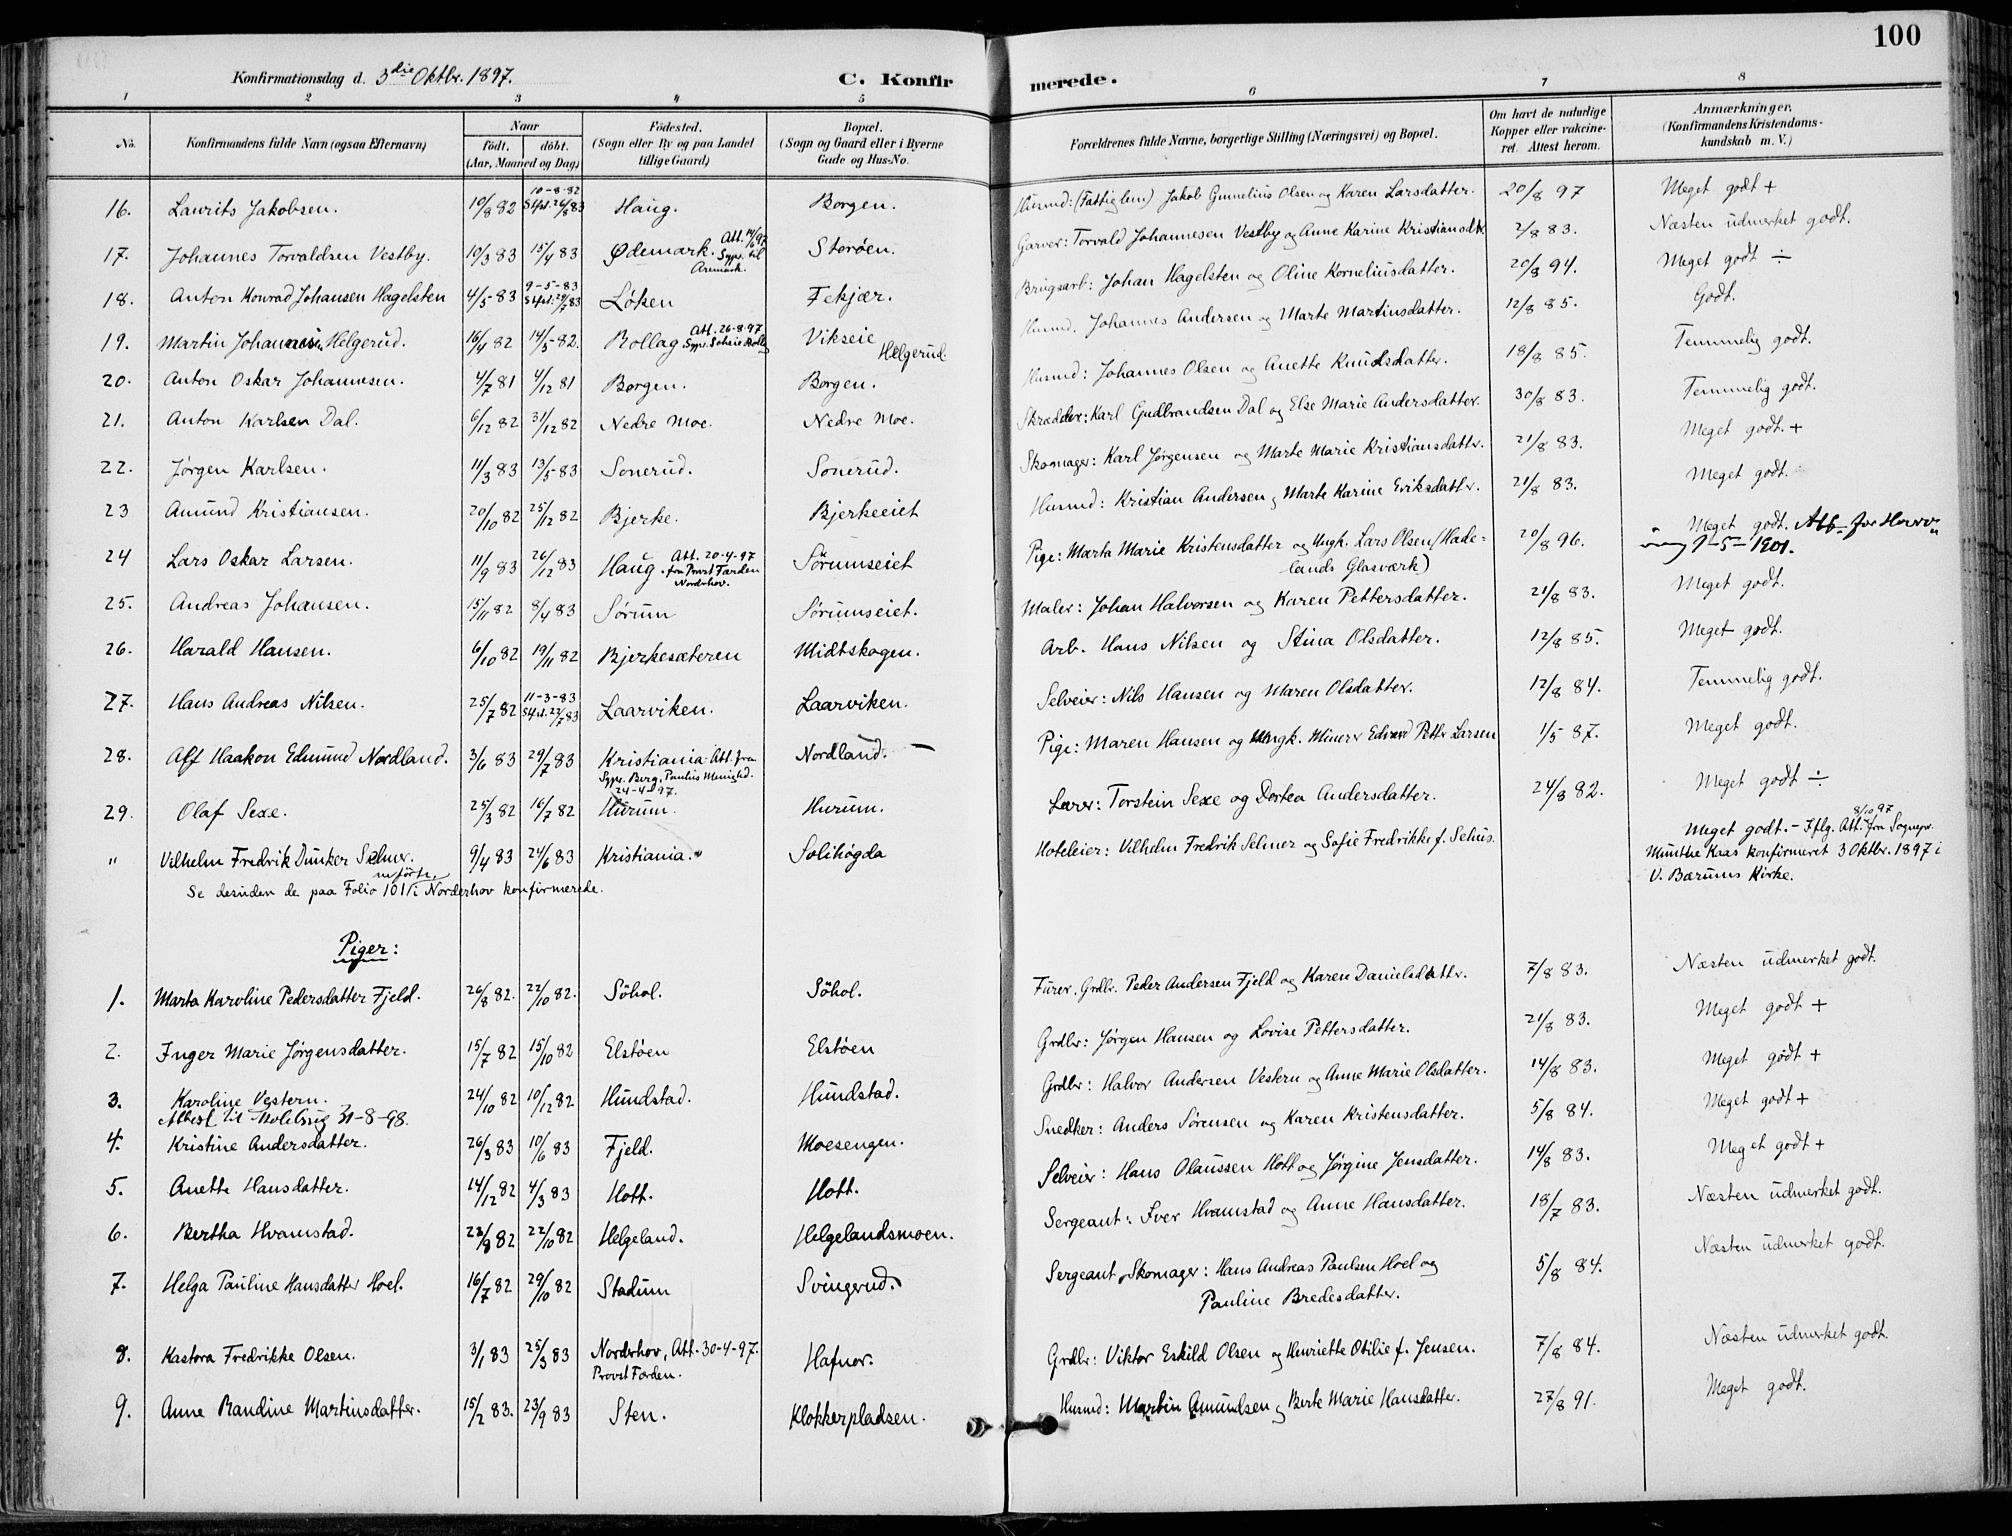 100
Konfirmationsdag d. 3die Oktbr. 1897. C. Konfirmerede.
1 2 3 4 5 6 7 8
No. Konfirmandens fulde Navn (ogsaa Efternavn) Naar født. døbt. (Aar, Maaned og Dag) Fødested. (Sogn eller By og paa Landet tillige Gaard) Bopæl. (Sogn og Gaard eller i Byerne Gade og Hus-No. Forældrenes fulde Navne, borgerlige Stilling (Næringsvei) og Bopæl. Om havt de naturlige Kopper eller vakcineret. Attest herom. Anmærkninger. (Konfirmandens Kristendomskundskab m. V.)
16. Laurits Jakobsen. 10/8 82 10-8-82 Stfst. 26/8 83 Haug. Borgen. Husmd: (Fattiglem) Jakob Gunnelius Olsen og Karen Larsdatter. 20/8 97 Meget godt +
17. Johannes Torvaldsen Vestby. 10/3 83 15/4 83 Ødemark. Att. 14/6 97 Sypr. til Aremark. Storøen. Garver: Torvald Johannesen Vestby og Anne Karine Kristiansdtr 2/8 83. Næsten udmerket godt.
18. Anton Konrad Johansen Hagelsten 4/5 83 9-5-83 Stfst. 29/7 83 Løken Fekjær. Brugsarb: Johan Hagelsten og Oline Korneliusdatter. 20/8 94. Meget godt ÷
19. Martin Johannesen Helgerud. 16/4 82 14/5 82. Rollag. Att. 26-8-97 Vikseie Helgerud. Husmd. Johannes Andersen og Marte Martinsdatter. 12/8 85. Godt.
20. Anton Oskar Johannesen. 4/7 81 4/12 81 Borgen. Borgen. Husmd: Johannes Olsen og Anette Knudsdatter. 18/8 85. Temmelig godt.
21. Anton Karlsen Dal. 6/12 82 31/12 82 Nedre Moe. Nedre Moe. Skrædder: Karl Gudbrandsen Dal og Else Marie Andersdatter. 30/8 83. Temmelig godt.
22. Jørgen Karlsen. 11/3 83 13/5 83 Sonerud. Sonerud. Skomager: Karl Jørgensen og Marte Marie Kristiansdatter. 21/8 83. Meget godt. +
23 Amund Kristiansen. 20/10 82 25/12 82 Bjerke. Bjerkeeiet Husmd: Kristian Andersen og Marte Karine Eriksdatter. 21/8 83. Meget godt.
24 Lars Oskar Larsen. 11/9 83 26/12 83 Haug. Att. 20-4-97 fra Provst Farden Norderhov. Sørumseiet Pige: Marta Marie Kristensdatter og Ungk. Lars Olsen (Hadelands Glasværk) 20/8 96. Meget godt. Att. for 1-5-1901.
25. Andreas Johansen. 15/11 82 8/4 83 Sørum Sørumseiet. Maler: Johan Halvorsen og Karen Pettersdatter. 21/8 83. Meget godt.
26. Harald Hansen. 6/10 82 19/11 82 Bjerkesæteren Midtskogen. Arb. Hans Nilsen og Stina Olsdatter. 12/8 85. Meget godt.
27. Hans Andreas Nilsen. 25/7 82 11-3-83 Stfst. 22/7 83 Laarviken. Laarviken. Selveier: Nils Hansen og Maren Olsdatter. 12/8 84. Temmelig godt.
28. Alf Haakon Edmund Nordland. 3/6 83 29/7 83 Kristiania. Att. fra Sypr. Berg, Paulus Menighed. 24-4-97. Nordland. — Pige: Maren Hansen og Ungk. Minerer Edvard Petter Larsen 1/5 87. Meget godt.
29. Olaf Sexe. 25/3 82 16/7 82 Hurum. Hurum. Lærer: Torstein Sexe og Dortea Andersdatter. 24/8 82. Meget godt ÷
" Vilhelm Fredrik Dunker Selmer. 9/4 83 24/6 83 Kristiania. Solihøgda Hoteleier: Vilhelm Fredrik Selmer og Sofie Fredrikke f. Selius. Meget godt. - Iflg. Att. 8/10 97 fra Sognepr. Munthe Kaas konfirmeret 3 Oktbr. 1897 i V. Bærums Kirke.
Se desuden de paa Folio 101 anførte, i Norderhov konfirmerede.
Piger:
1. Marta Karoline Pedersdatter Fjeld. 26/8 82. 22/10 82. Søhol. Søhol. Furer. Grdbr. Peder Andersen Fjeld og Karen Danielsdatter. 7/8 83. Næsten udmerket godt.
2. Inger Marie Jørgensdatter. 15/7 82 15/10 82 Elstøen Elstøen Grdbr: Jørgen Hansen og Lovise Pettersdatter. 21/8 83. Meget godt +
3. Karoline Vestern. 24/10 82 10/12 82 Hundstad. Hundstad. Grdbr: Halvor Andersen Vestern og Anne Marie Olsdatter. 14/8 83. Meget godt +
Attest til 31-8-98.
4. Kristine Andersdatter. 26/3 83 10/6 83 Fjeld. Moesengen. Snedker: Anders Sørensen og Karen Kristensdatter. 5/8 84. Meget godt +
5. Anette Hansdatter. 14/12 82 4/3 83 Hott. Hott. Selveier: Hans Olaussen Hott og Jørgine Jensdatter. 14/8 83. Meget godt +
6. Bertha Hvamstad. 23/8 82 22/10 82 Helgeland. Helgelandsmoen. Sergeant: Iver Hvamstad og Anne Hansdatter. 18/7 83. Næsten udmerket godt.
7. Helga Pauline Hansdatter Hoel. 16/7 82 29/10 82 Stadum Svingerud. Sergeant, Skomager: Hans Andreas Paulsen Hoel og Pauline Bredesdatter. 5/8 84. Næsten udmerket godt.
8. Kastora Fredrikke Olsen. 3/1 83 25/3 83 Norderhov, Att. 30-4-97. Provst Farden. Hafnor. Grdbr: Viktor Eskild Olsen og Henriette Otilie f. Jensen. 7/8 84. Næsten udmerket godt.
9. Anne Randine Martinsdatter. 15/2 83. 23/9 83 Sten. Klokkerpladsen. Husmd: Martin Amundsen og Berte Marie Hansdatter. 27/8 91. Meget godt.